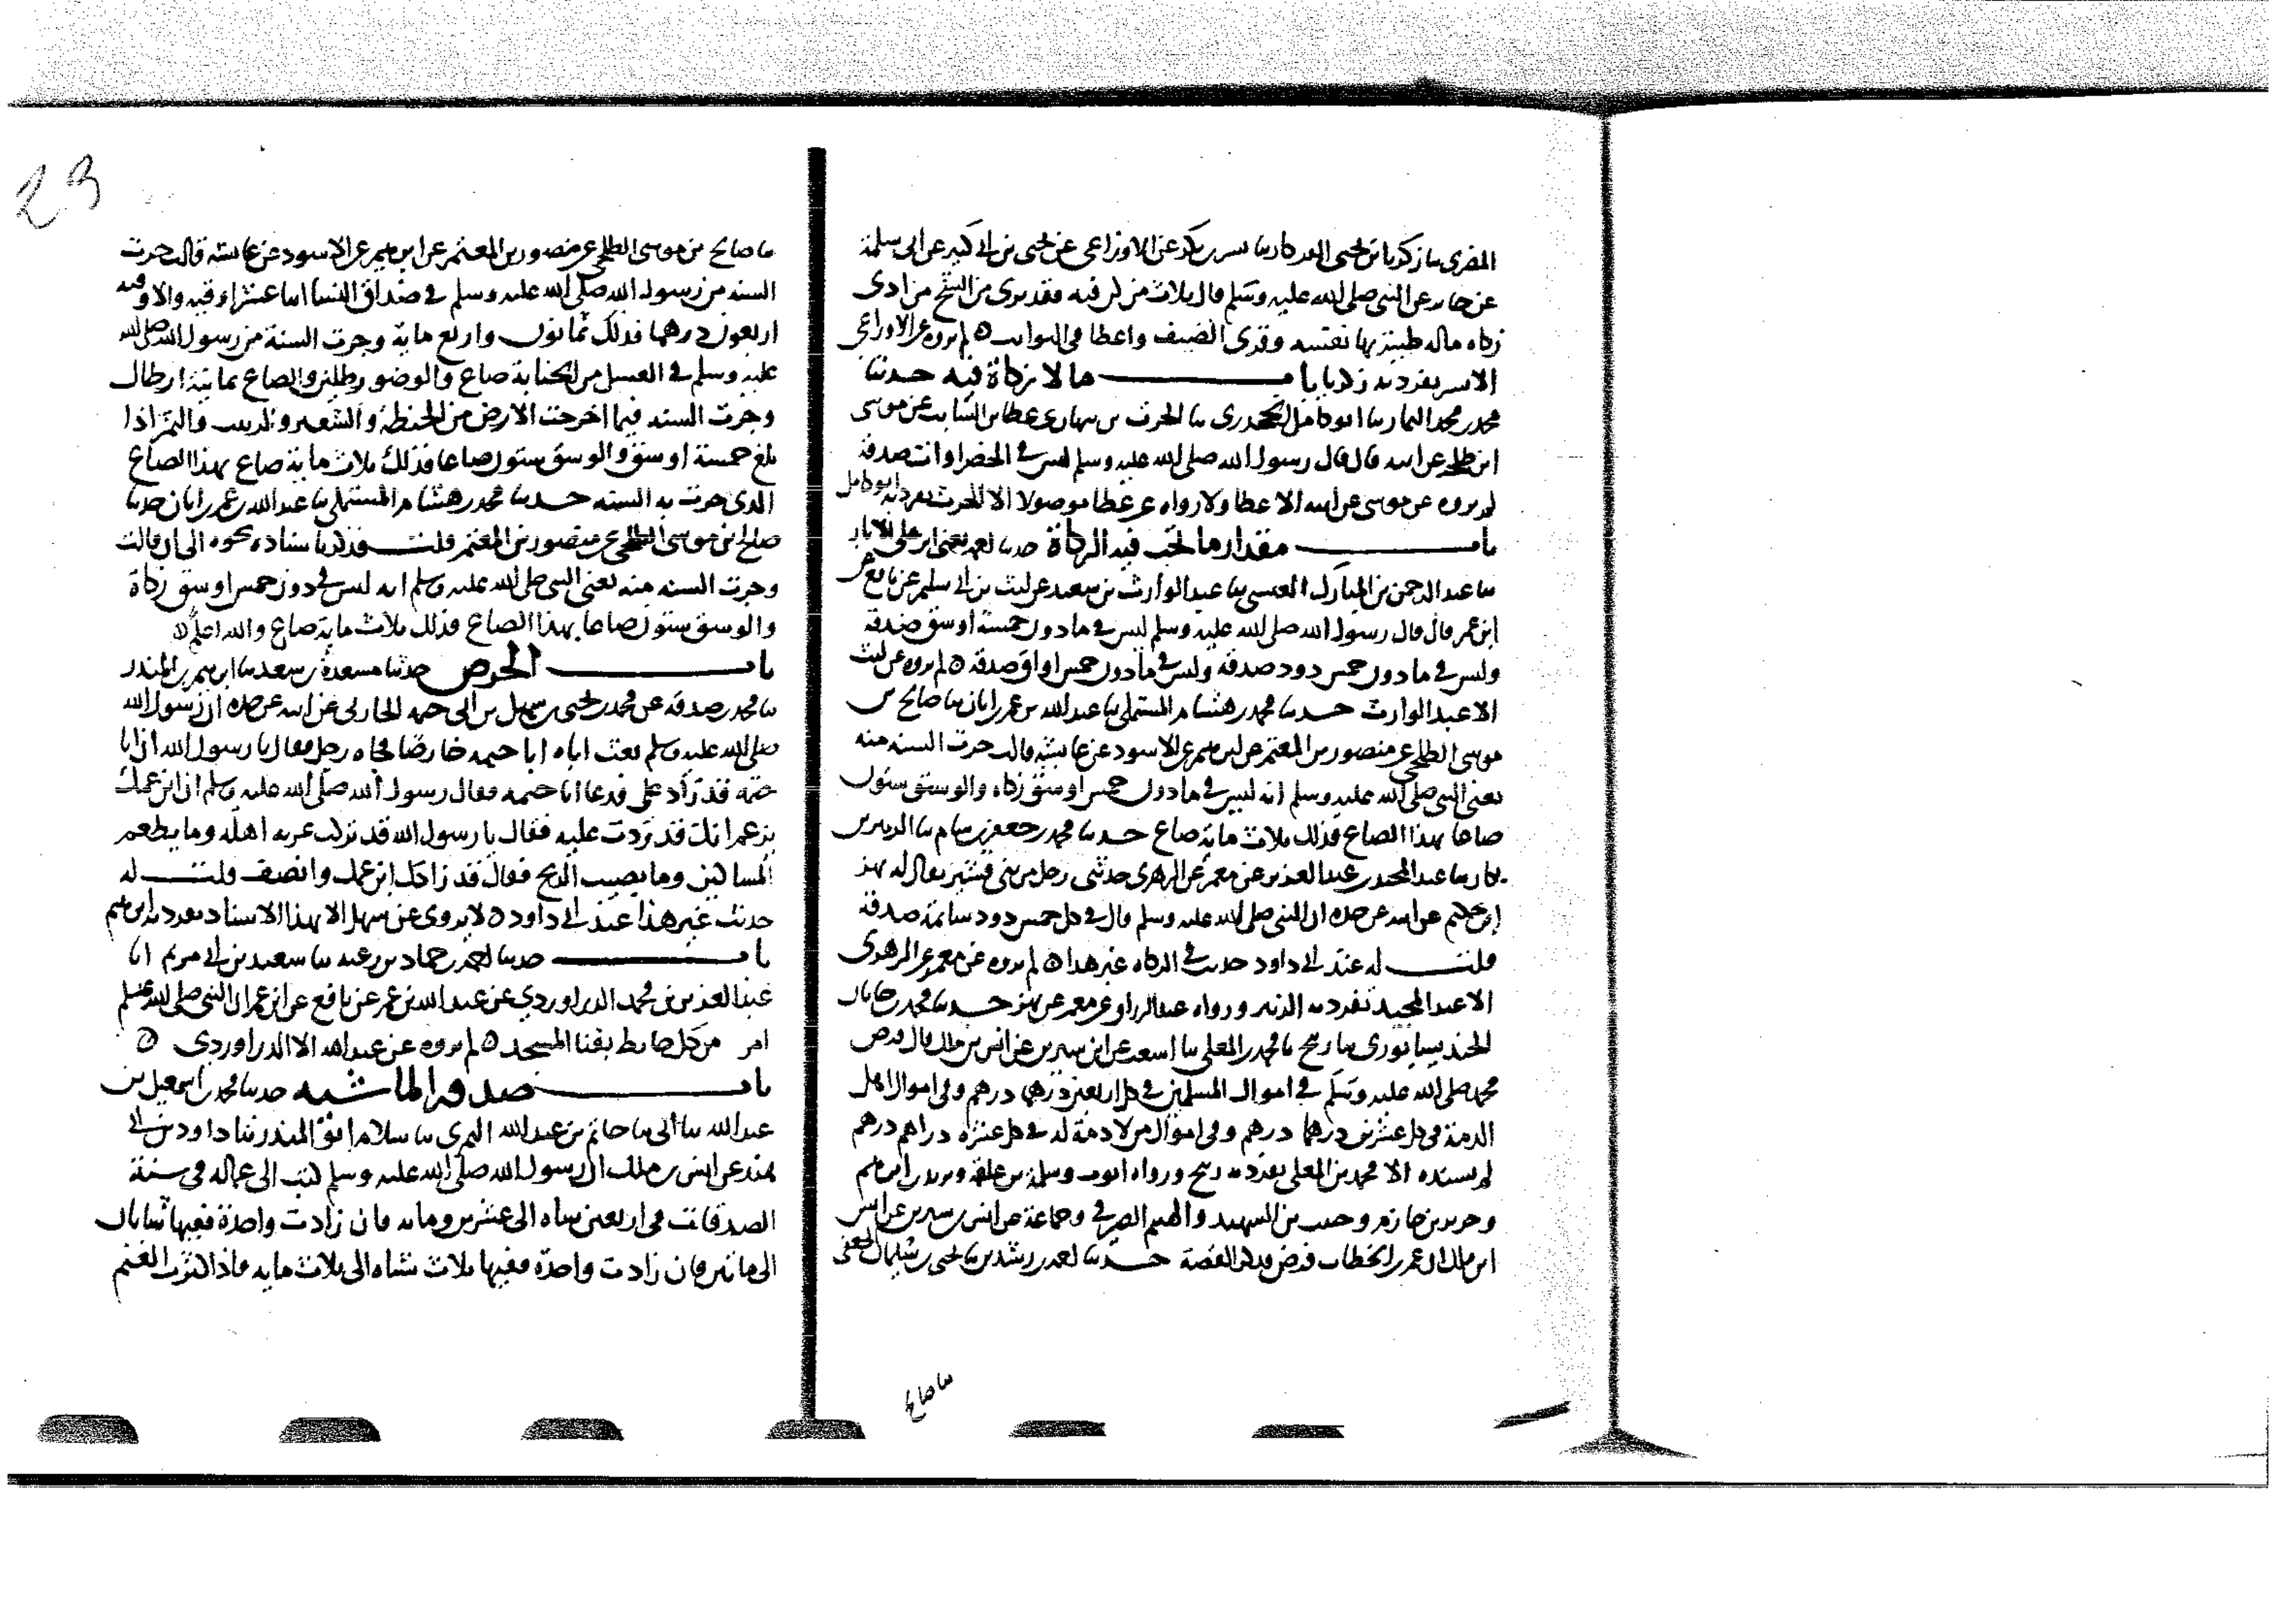 المصري ثنا زكريا بن يحيى ثنا بشر بن بكر عن الاوزاعي عن يحيى بن ابي كثير عن ابي سلمة
عن جابر عن النبي صلى الله عليه وسلم قال ثلاث من كن فيه فقد بري من الشح من ادى
زكاه ماله طيبة بها نفسه وقرى الضيف واعطا في النوايب لم يروه عن الاوزاعي
الا بشر تفرد به زكريا باب ما لا زكاة فيه حدثنا
محمد بن محمد التمار ثنا ابو كامل الجحدري ثنا الحرث بن نبهان عن عطا بن السايب عن موسى
ابن طلحة عن ابيه قال قال رسول الله صلى الله عليه وسلم ليس في الخضراوات صدقة
لم يروه عن موسى عن ابيه الا عطا ولا رواه عن عطا موصولا الا الحرث تفرد به ابو كامل
باب مقدار ما تجب فيه الزكاة حدثنا احمد يعني ابن علي الابار
ثنا عبد الرحمن بن المبارك العيسي ثنا عبد الوارث بن سعيد عن ليث بن ابي سليم عن نافع عن
ابن عمر قال قال رسول الله صلى الله عليه وسلم ليس في ما دون خمسة اوسق صدقة
وليس في ما دون خمس ذود صدقة وليس في ما دون خمس اواق صدقة لم يروه عن ليث
الا عبد الوارث حدثنا محمد بن هشام المستملي ثنا عبد الله بن عمر بن ابان ثنا صالح بن
موسى الطلحي عن منصور بن المعتمر عن ابرهيم عن الاسود عن عايشة قالت جرت السنه منه
يعني النبي صلى الله عليه وسلم انه ليس في ما دون خمس اوسق زكاه والوسق ستون
صاعا بهذا الصاع فذلك ثلاث ماية صاع حدثنا محمد بن جعفر بن سام ثنا الزبير بن
بكار ثنا عبد المجيد بن عبد العزيز عن معمر عن الزهري حدثني رجل من بني قشير يقال له بهز
ابن حكيم عن ابيه عن جده ان النبي صلى الله عليه وسلم قال في كل خمس ذود سايمة صدقة
قلت له عند ابي داود حديث في الزكاه غير هذا لم يروه عن معمر عن الزهري
الا عبد المجيد تفرد به الزبير ورواه عبد الرزاق عن معمر عن بهز حدثنا محمد بن جابان
الجنديسابوري ثنا زنيج ثنا محمد بن المعلى ثنا اشعث عن ابن سيرين عن انس بن ملك قال فرض
محمد صلى الله عليه وسلم في اموال المسلمين في كل اربعين درهما درهم وفي اموال اهل
الذمة في كل عشرين درهما درهم وفي اموال من لا ذمة له في كل عشرة دراهم درهم
لم يسنده الا محمد بن المعلى تفرد به زنيج ورواه ايوب وسلمة بن علقمة ويزيد بن ابرهيم
وجرير بن حازم وحبيب بن الشهيد والهيثم الصيرفي وجماعة عن انس بن سيرين عن انس
ابن ملك ان عمر بن الخطاب فرض فذكر القصة حدثنا احمد بن رشدين ثنا يحيى بن سليمان الجعفي
ثنا صالح
23
ثنا صالح بن موسى الطلحي عن منصور بن المعتمر عن ابرهيم عن الاسود عن عايشه قالت جرت
السنه من رسول الله صلى الله عليه وسلم في صداق النسا اثنا عشر اوقيه والاوقيه
اربعون درهما فذلك ثمانون واربع ماية وجرت السنة من رسول الله صلى الله
عليه وسلم في الغسل من الجنابة صاع والوضو رطلين والصاع ثمانية ارطال
وجرت السنه فيما اخرجت الارض من الحنطة والشعير والزبيب والتمر اذا
بلغ خمسة اوسق والوسق ستون صاعا فذلك ثلاث ماية صاع بهذا الصاع
الذي جرت به السنه حدثنا محمد بن هشام المستملي ثنا عبد الله بن عمر بن ابان حدثنا
صالح بن موسى الطلحي عن منصور بن المعتمر قلت فذكر باسناده نحوه الى ان قالت
وجرت السنه منه يعني النبي صلى الله عليه وسلم انه ليس في دون خمس اوسق زكاة
والوسق ستون صاعا بهذا الصاع فذلك ثلاث ماية صاع والله اعلم
باب الخرص حدثنا مسعدة بن سعد ثنا ابرهيم بن المنذر
ثنا محمد بن صدقة عن محمد بن يحيى بن سهل بن ابي حثمه الحارثي عن ابيه عن جده ان رسول الله
صلى الله عليه وسلم بعث اباه ابا حثمه خارصا فجاه رجل فقال يا رسول الله ان ابا
حثمة قد زاد علي فدعا ابا حثمه فقال رسول الله صلى الله عليه وسلم ان ابن عمك
يزعم انك قد زدت عليه فقال يا رسول الله قد تركت عرية اهله وما يطعم
المساكين وما يصيب الريح فقال قد زادك ابن عمك وانصف قلت له
حديث غير هذا عند ابي داود لا يروى عن سهل الا بهذا الاسناد تفرد به ابرهيم
باب حدثنا احمد بن حماد بن زغبه ثنا سعيد بن ابي مريم انا
عبد العزيز بن محمد الدراوردي عن عبيد الله بن عمر عن نافع عن ابن عمر ان النبي صلى الله عليه وسلم
امر من كل حايط بقنا المسجد لم يروه عن عبيد الله الا الدراوردي
باب صدقة الماشيه حدثنا محمد بن اسمعيل بن
عبد الله ثنا ابي ثنا حاتم بن عبيد الله النمري ثنا سلام ابو المنذر ثنا داود بن ابي
هند عن انس بن ملك ان رسول الله صلى الله عليه وسلم كتب الى عماله في سنة
الصدقات في اربعين شاه الى عشرين ومايه فان زادت واحدة ففيها شاتان
الى مايتين فان زادت واحدة ففيها ثلاث شاه الى ثلاث مايه فاذا كثرت الغنم